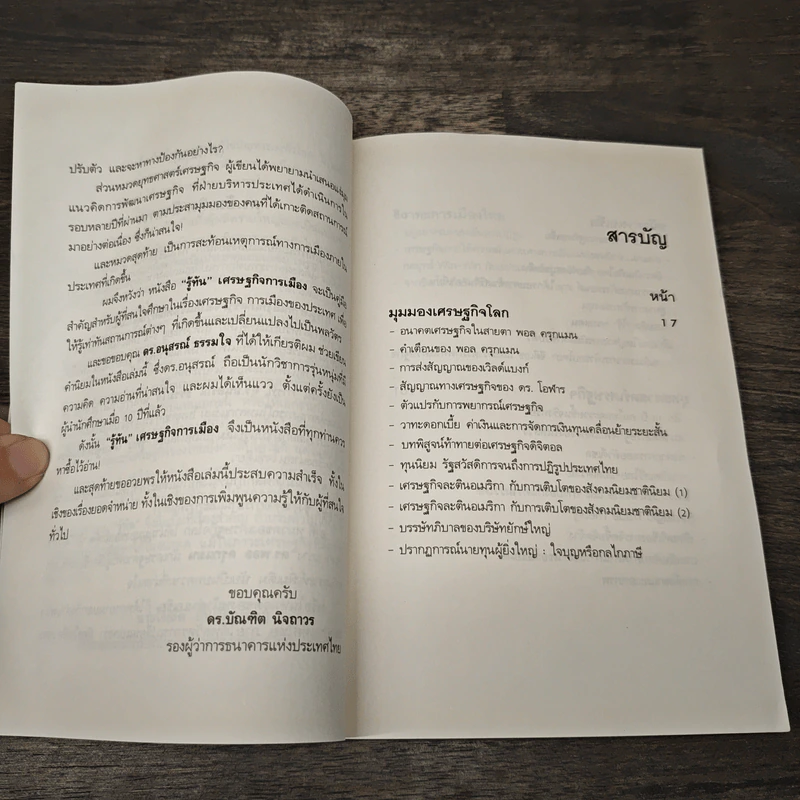 ปรับตัว และจะหาทางป้องกันอย่างไร?
ส่วนหมวดยุทธศาสตร์เศรษฐกิจ ผู้เขียนได้พยายามนำเสนอ
แนวคิดการพัฒนาเศรษฐกิจ ที่ฝ่ายบริหารประเทศได้ดำเนินการใน
รอบหลายปีที่ผ่านมา ตามประสามุมมองของคนที่ได้เกาะติดสถานการณ์
มาอย่างต่อเนื่อง ซึ่งก็น่าสนใจ!
และหมวดสุดท้าย เป็นการสะท้อนเหตุการณ์ทางการเมืองภายใน
ประเทศที่เกิดขึ้น
ผมจึงหวังว่า หนังสือ "รู้ทัน" เศรษฐกิจการเมือง จะเป็นคู่มือ
สำคัญสำหรับผู้ที่สนใจศึกษาในเรื่องเศรษฐกิจ การเมืองของประเทศ เพื่อ
ให้รู้เท่าทันสถานการณ์ต่างๆ ที่เกิดขึ้นและเปลี่ยนแปลงไปเป็นพลวัตร
และขอขอบคุณ ดร.อนุสรณ์ ธรรมใจ ที่ได้ให้เกียรติผม ช่วยเขียน
คำนิยมในหนังสือเล่มนี้ ซึ่งดร.อนุสรณ์ ถือเป็นนักวิชาการรุ่นหนุ่มที่มี
ความคิด ความอ่านที่น่าสนใจ และผมได้เห็นแวว ตั้งแต่ครั้งยังเป็น
ผู้นำนักศึกษาเมื่อ 10 ปีที่แล้ว
ดังนั้น "รู้ทัน" เศรษฐกิจการเมือง จึงเป็นหนังสือที่ทุกท่านควร
หาซื้อไว้อ่าน!
และสุดท้ายขออวยพรให้หนังสือเล่มนี้ประสบความสำเร็จ ทั้งใน
เชิงของเรื่องยอดจำหน่าย ทั้งในเชิงของการเพิ่มพูนความรู้ให้กับผู้ที่สนใจ
ทั่วไป
ขอบคุณครับ
ดร.บัณฑิต นิจถาวร
รองผู้ว่าการธนาคารแห่งประเทศไทย
สารบัญ
หน้า
มุมมองเศรษฐกิจโลก 17
- อนาคตเศรษฐกิจในสายตา พอล ครุกแมน
- คำเตือนของ พอล ครุกแมน
- การส่งสัญญาณของเวิลด์แบงก์
- สัญญาณทางเศรษฐกิจของ ดร. โอฬาร
- ตัวแปรกับการพยากรณ์เศรษฐกิจ
- วาทะดอกเบี้ย ค่าเงินและการจัดการเงินทุนเคลื่อนย้ายระยะสั้น
- บทพิสูจน์ท้าทายต่อเศรษฐกิจดิจิตอล
- ทุนนิยม รัฐสวัสดิการจนถึงการปฏิรูปประเทศไทย
- เศรษฐกิจละตินอเมริกา กับการเติบโตของสังคมนิยมชาตินิยม (1)
- เศรษฐกิจละตินอเมริกา กับการเติบโตของสังคมนิยมชาตินิยม (2)
- บรรษัทภิบาลของบริษัทยักษ์ใหญ่
- ปรากฏการณ์นายทุนผู้ยิ่งใหญ่ : ใจบุญหรือกลไกภาษี